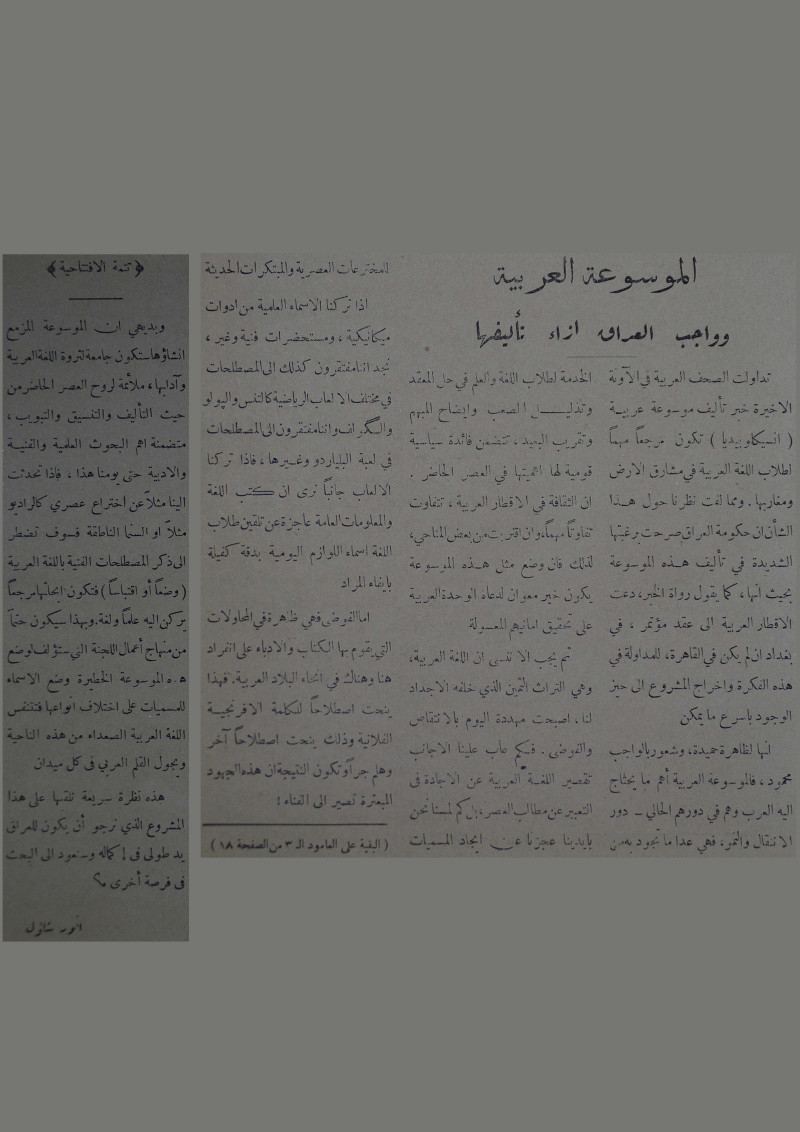 الموسوعة العربية
وواجب العراق ازاء تأليفها
تداولت الصحف العربية في الآونة
الاخيرة خبر تأليف موسوعة عربية
( انسيكلوبيديا ) تكون مرجعاً مهماً
لطلاب اللغة العربية في مشارق الارض
ومغاربها . ومما لفت نظرنا حول هذا
الشأن ان حكومة العراق صرحت برغبتها
الشديدة في تأليف هذه الموسوعة
بحيث انها ، كما يقول رواة الخبر ، دعت
الاقطار العربية الى عقد مؤتمر ، في
بغداد ان لم يكن في القاهرة ، للمداولة في
هذه الفكرة واخراج المشروع الى حيز
الوجود باسرع ما يمكن
انها لظاهرة حميدة ، وشعور بالواجب
محمود ، فالموسوعة العربية أهم ما يحتاج
اليه العرب وهم في دورهم الحالي ـ دور
الانتقال والنمو ، فهي عدا ما تجود به من
الخدمة لطلاب اللغة والعلم في حل المعقد
وتذليل الصعب وايضاح المبهم
وتقريب البعيد ، تتضمن فائدة سياسية
قومية لها اهميتها في العصر الحاضر .
ان الثقافة في الاقطار العربية ، تتفاوت
تفاوتاً مهماً ، وان اقتربت من بعض المناحي ،
لذلك فان وضع مثل هذه الموسوعة
يكون خير معوان لدعاة الوحدة العربية
على تحقيق امانيهم المعسولة
ثم يجب الا ننسى ان اللغة العربية ،
وهي التراث الثمين الذي خلفه الاجداد
لنا ، اصبحت مهددة اليوم بالانتقاص
والفوضى . فكم عاب علينا الاجانب
تقصير اللغة العربية عن الاجادة في
التعبير عن مطالب العصر ، بل كم لمسنا نحن
بايدينا عجزنا عن ايجاد المسميات
للمخترعات العصرية والمبتكرات الحديثة
اذا تركنا الاسماء العلمية من ادوات
ميكانيكية ، ومستحضرات فنية وغير ،
نجد اننا مفتقرون كذلك الى المصطلحات
في مختلف الالعاب الرياضية كالتنس والپولو
والگولف واننا مفتقرون الى المصطلحات
في لعبة البلياردو وغيرها ، فاذا تركنا
الالعاب جانباً نرى ان كتب اللغة
والمعلومات العامة عاجزة عن تلقين طلاب
اللغة اسماء اللوازم اليومية بدقة كفيلة
بايفاء المراد
اما الفوضى فهي ظاهرة في المحاولات
التي يقوم بها الكتاب والادباء على انفراد
هنا وهناك في انحاء البلاد العربية . فهذا
ينحت اصطلاحاً للكلمة الافرنجية
الفلانية وذلك ينحت اصطلاحاً آخر
وهلم جراً وتكون النتيجة ان هذه الجهود
المبعثرة تصير الى الفناء !
( البقية على العامود الـ ٣ من الصفحة ١٨ )
﴿ تتمة الافتتاحية ﴾
وبديهي ان الموسوعة المزمع
انشاؤها ستكون جامعة لثروة اللغة العربية
وآدابها ، ملائمة لروح العصر الحاضر من
حيث التأليف والتنسيق والتبويب ،
متضمنة اهم البحوث العلمية والفنية
والادبية حتى يومنا هذا ، فاذا تحدثت
الينا مثلاً عن اختراع عصري كالراديو
مثلاً او السنما الناطقة فسوف تضطر
الى ذكر المصطلحات الفنية باللغة العربية
( وضعاً أو اقتباساً ) فتكون ابحاثها مرجعاً
يركن اليه علماً ولغة . وبهذا سيكون حتماً
من منهاج أعمال اللجنة التي ستؤلف لوضع
هذه الموسوعة الخطيرة وضع الاسماء
للمسميات على اختلاف انواعها فتتنفس
اللغة العربية الصعداء من هذه الناحية
ويجول القلم العربي في كل ميدان
هذه نظرة سريعة نلقيها على هذا
المشروع الذي نرجو أن يكون للعراق
يد طولى في اكماله وسنعود الى البحث
في فرصة أخرى
انور شاؤل